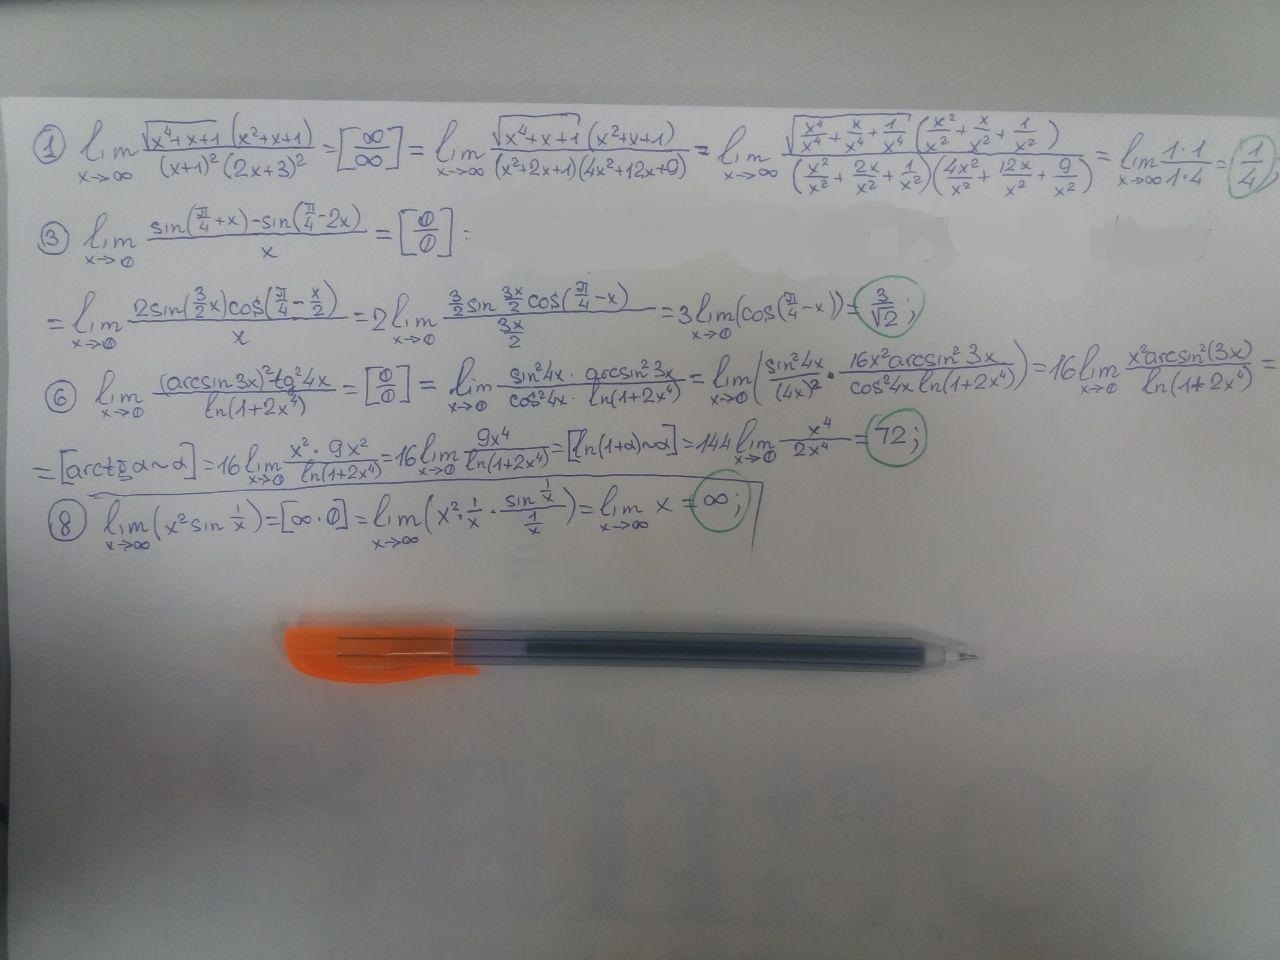 ① lim x→∞ √(x⁴+x+1) (x²+x+1) / (x+1)² (2x+3)² = [∞/∞] = lim x→∞ √(x⁴+x+1) (x²+x+1) / (x²+2x+1)(4x²+12x+9) = lim x→∞ √(x⁴/x⁴ + x/x⁴ + 1/x⁴) (x²/x² + x/x² + 1/x²) / (x²/x² + 2x/x² + 1/x²)(4x²/x² + 12x/x² + 9/x²) = lim x→∞ 1·1 / 1·4 = 1/4;
③ lim x→0 sin(π/4+x)-sin(π/4-2x) / x = [0/0] =
= lim x→0 2sin(3/2x)cos(π/4-x/2) / x = 2 lim x→0 3/2 sin 3x/2 cos(π/4-x) / 3x/2 = 3 lim x→0 (cos(π/4-x)) = 3/√2;
⑥ lim x→0 (arcsin 3x)² tg²4x / ln(1+2x⁴) = [0/0] = lim x→0 sin²4x · arcsin²3x / cos²4x · ln(1+2x⁴) = lim x→0 (sin²4x / (4x)² · 16x² arcsin²3x / cos²4x ln(1+2x⁴)) = 16 lim x→0 x² arcsin²(3x) / ln(1+2x⁴) =
= [arctg α ~ α] = 16 lim x→0 x² · 9x² / ln(1+2x⁴) = 16 lim x→0 9x⁴ / ln(1+2x⁴) = [ln(1+α)~α] = 144 lim x→0 x⁴ / 2x⁴ = 72;
⑧ lim x→∞ (x² sin 1/x) = [∞·0] = lim x→∞ (x² · 1/x · sin 1/x / 1/x) = lim x→∞ x = ∞;